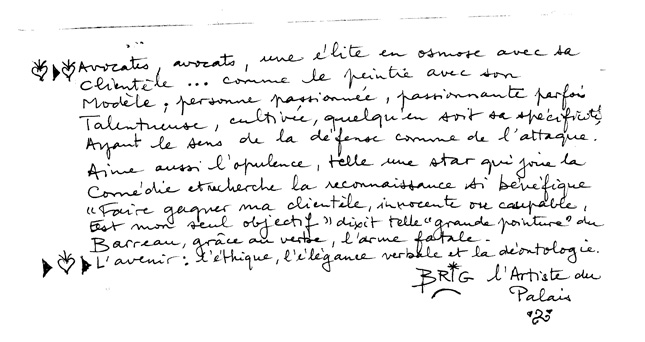 Avocates, avocats, une élite en osmose avec sa
Clientèle ... comme le peintre avec son
Modèle ; personne passionnée, passionnante parfois
Talentueuse, cultivée, quelqu'en soit sa spécificité,
Ayant le sens de la défense comme de l'attaque.
Aime aussi l'opulence, telle une star qui joue la
Comédie et recherche la reconnaissance si bénéfique
"Faire gagner ma clientèle, innocente ou coupable,
Est mon seul objectif" dixit telle "grande pointure" du
Barreau, grâce au verbe, l'arme fatale.
L'avenir : l'éthique, l'élégance verbale et la déontologie.
BRIG l'Artiste du
Palais
"2"